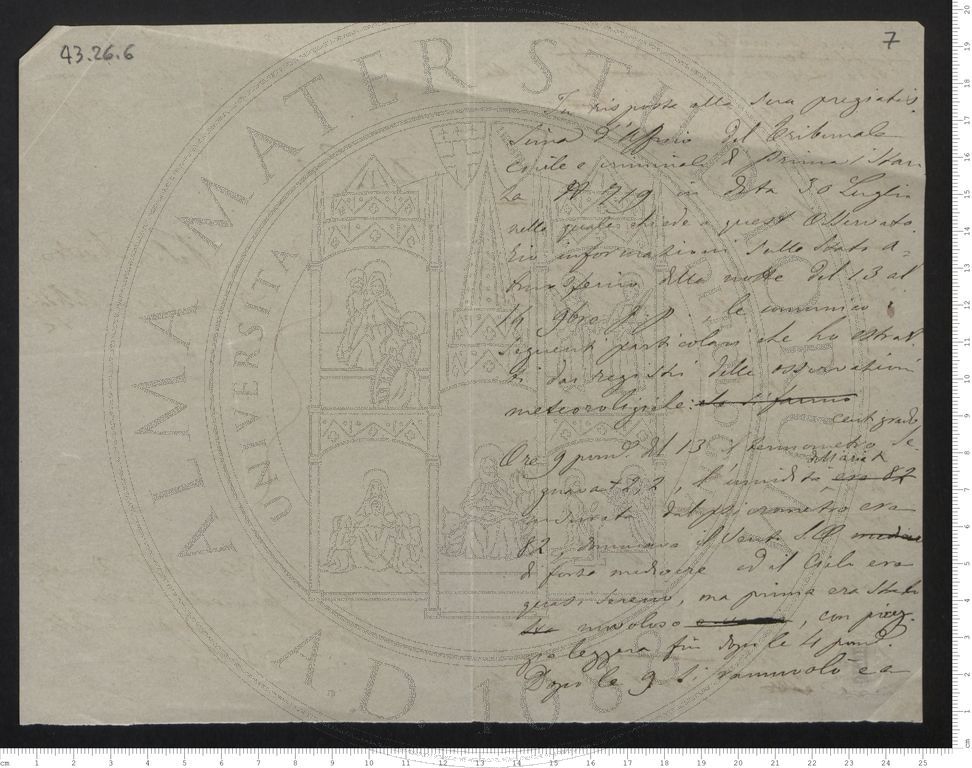 43.26.6
7
In risposta alla sua pregiatis
sima d'Ufficio del Tribunale
Civile e criminale di Prima istan
za N 719 in data 30 Luglio
nella quale chiede a quest' Osservato
rio informazioni sullo stato a
tmosferico della notte del 13 al
14 9bre p.p. le comunico i
seguenti particolari che ho estrat
ti dai registri delle osservazioni
meteorologiche:
centigrado
Ore 9 pom. del 13 il termometro se
gnava + 2,2, l'umidità dell'aria era 82
misurata dal psicrometro era
82, dominava il vento S.O. medio
di forza mediocre ed il Cielo era
quasi sereno, ma prima era stato
nuvoloso, con piog
gia leggera fin dopo le 4 pom.
Dopo le 9 si rannuvolò e a
ALMA MATER STUDIORUM
UNIVERSITÀ DI BOLOGNA
A.D. 1088